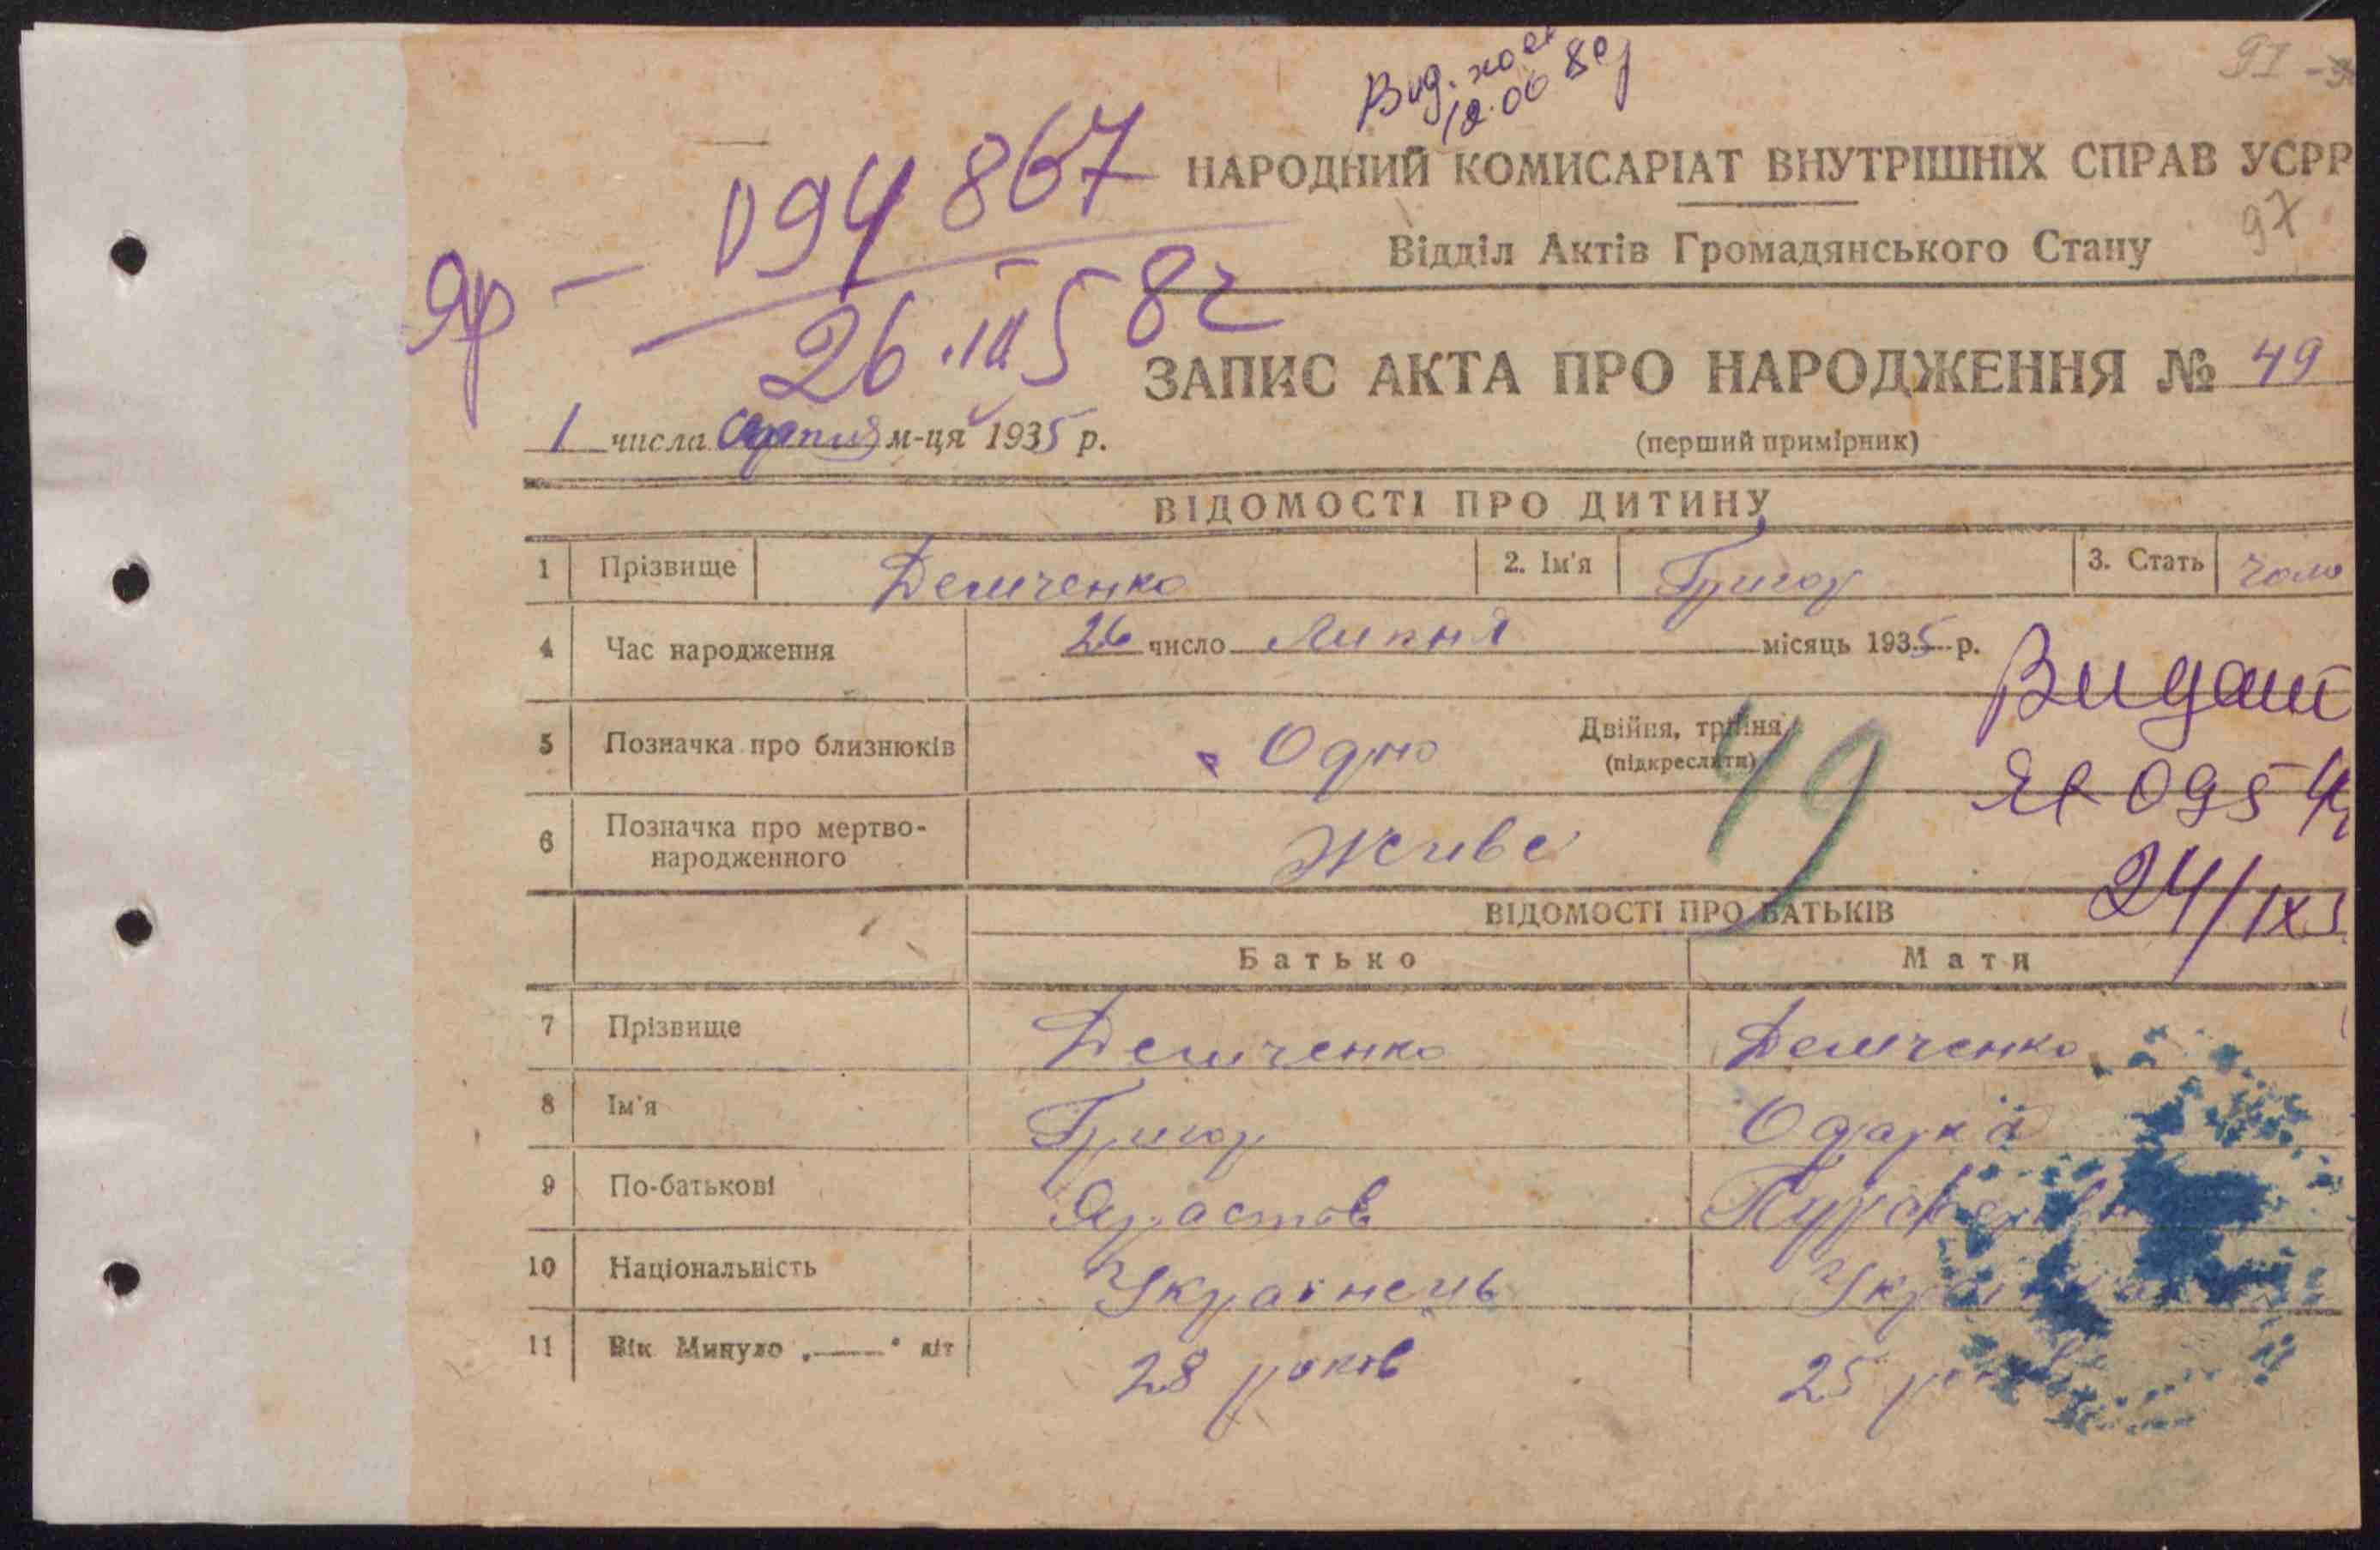 91
Вид.
12.06 80
094 867
НАРОДНИЙ КОМИСАРІАТ ВНУТРІШНІХ СПРАВ УСРР
97
Відділ Актів Громадянського Стану
Яр —
26.III 5 82
ЗАПИС АКТА ПРО НАРОДЖЕННЯ № 49
1 числа серпня м-ця 1935 р.
(перший примірник)
ВІДОМОСТІ ПРО ДИТИНУ
1 Прізвище Демченко 2. Ім'я Григор 3. Стать чоло
4 Час народження 26 число Липня місяць 1935 р.
Видано
5 Позначка про близнюків Одно Двійня, трійня
(підкреслити)
49
095
6 Позначка про мертво-
народженного Живе
24/IX
ВІДОМОСТІ ПРО БАТЬКІВ
Батько Мати
7 Прізвище Демченко Демченко
8 Ім'я Григор Одарка
9 По-батькові
10 Національність Українець
11 Вік Минуло „——“ літ 28 років 25